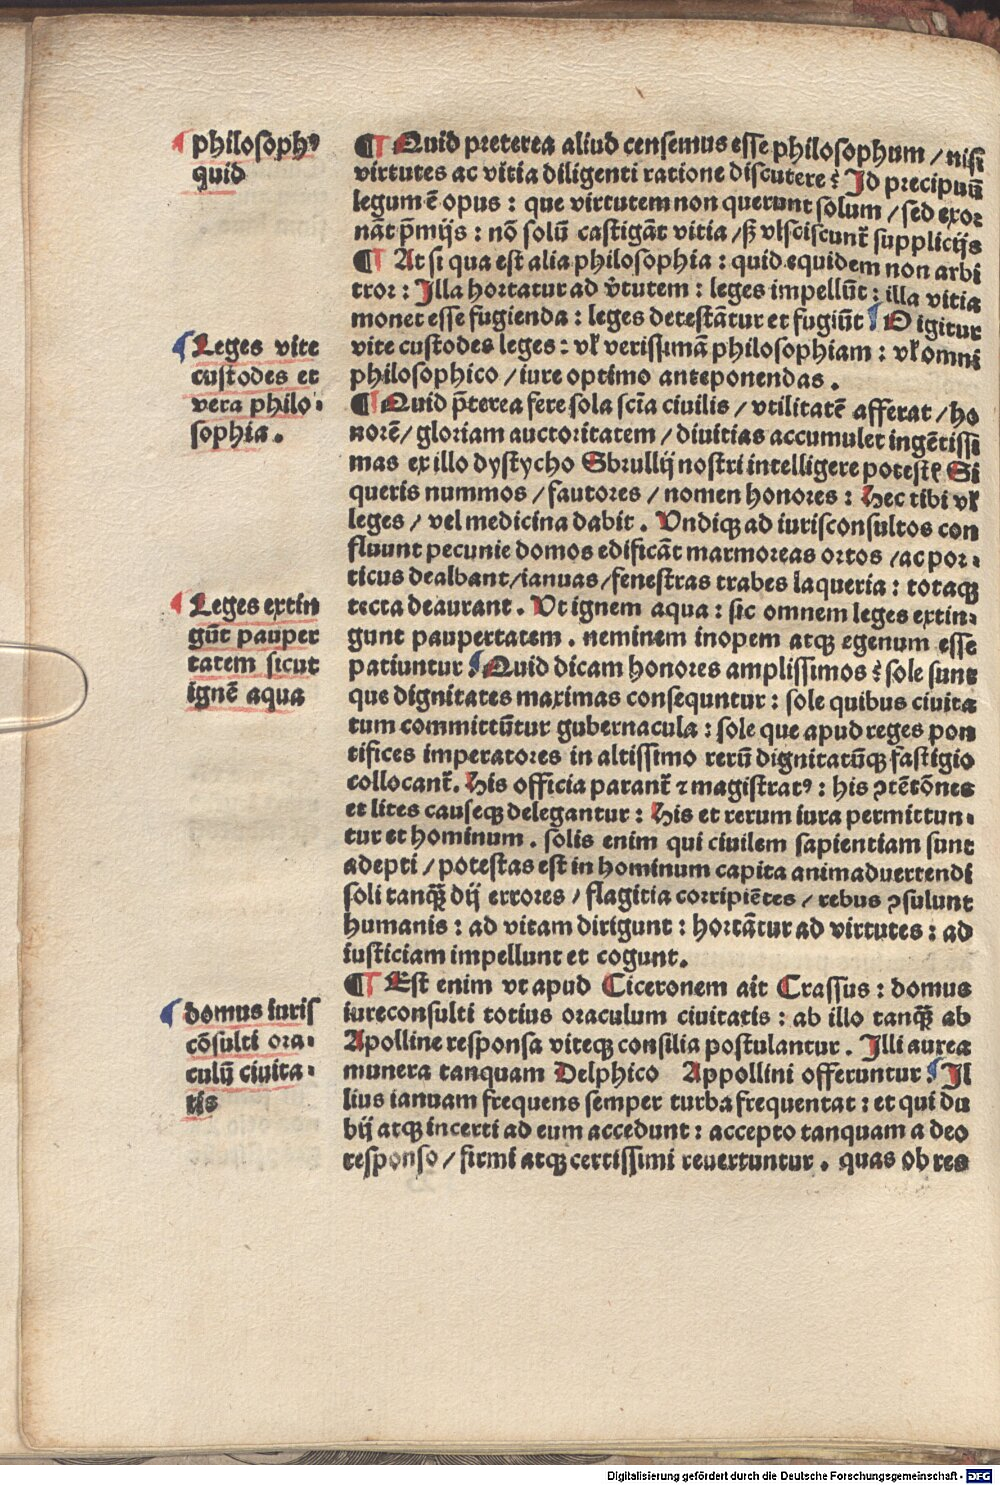 philosophꝰ
quid
¶ Quid preterea aliud censemus esse philosophum / nisi
virtutes ac vitia diligenti ratione discutere? Id precipuū
legum ē opus : que virtutem non querunt solum / sed exor
nāt p̄mijs : nō solū castigāt vitia / sꝫ vlsciscunt̄ supplicijs
¶ At si qua est alia philosophia : quid equidem non arbi
tror : Illa hortatur ad v̄tutem : leges impellūt : illa vitia
monet esse fugienda : leges detestātur et fugiūt ¶ O igitur
Leges vite
custodes et
vera philo⸗
sophia.
vite custodes leges : vł verissimā philosophiam : vł omni
philosophico / iure optimo anteponendas.
¶ Quid p̄terea fere sola scīa ciuilis / vtilitatē afferat / ho
norē / gloriam auctoritatem / diuitias accumulet ingētissi
mas ex illo dystycho Sbrullij nostri intelligere potest? Si
queris nummos / fautores / nomen honores : Hec tibi vł
leges / vel medicina dabit. Vndiqꝫ ad iurisconsultos con
fluunt pecunie domos edificāt marmoreas ortos / ac por⸗
ticus dealbant / ianuas / fenestras trabes laqueria : totaqꝫ
Leges extin
gūt pauper
tatem sicut
ignē aqua
tecta deaurant. Vt ignem aqua : sic omnem leges extin⸗
gunt paupertatem. neminem inopem atqꝫ egenum esse
patiuntur. ¶ Quid dicam honores amplissimos? sole sunt
que dignitates maximas consequntur : sole quibus ciuita
tum committūtur gubernacula : sole que apud reges pon
tifices imperatores in altissimo rerū dignitatūqꝫ fastigio
collocant̄. His officia parant̄ ⁊ magistratꝰ : his ꝯtētōnes
et lites causeqꝫ delegantur : His et rerum iura permittun⸗
tur et hominum. solis enim qui ciuilem sapientiam sunt
adepti / potestas est in hominum capita animaduertendi
soli tanqꝫ̄ dij errores / flagitia corripiētes / rebus ꝯsulunt
humanis : ad vitam dirigunt : hortātur ad virtutes : ad
iusticiam impellunt et cogunt.
domus iuris
cōsulti ora⸗
culū ciuita⸗
tis
¶ Est enim vt apud Ciceronem ait Crassus : domus
iureconsulti totius oraculum ciuitatis : ab illo tanqꝫ̄ ab
Apolline responsa viteqꝫ consilia postulantur. Illi aurea
munera tanquam Delphico Appollini offeruntur. ¶ Il
lius ianuam frequens semper turba frequentat : et qui du
bij atqꝫ incerti ad eum accedunt : accepto tanquam a deo
responso / firmi atqꝫ certissimi reuertuntur. quas ob res
Digitalisierung gefördert durch die Deutsche Forschungsgemeinschaft - DFG